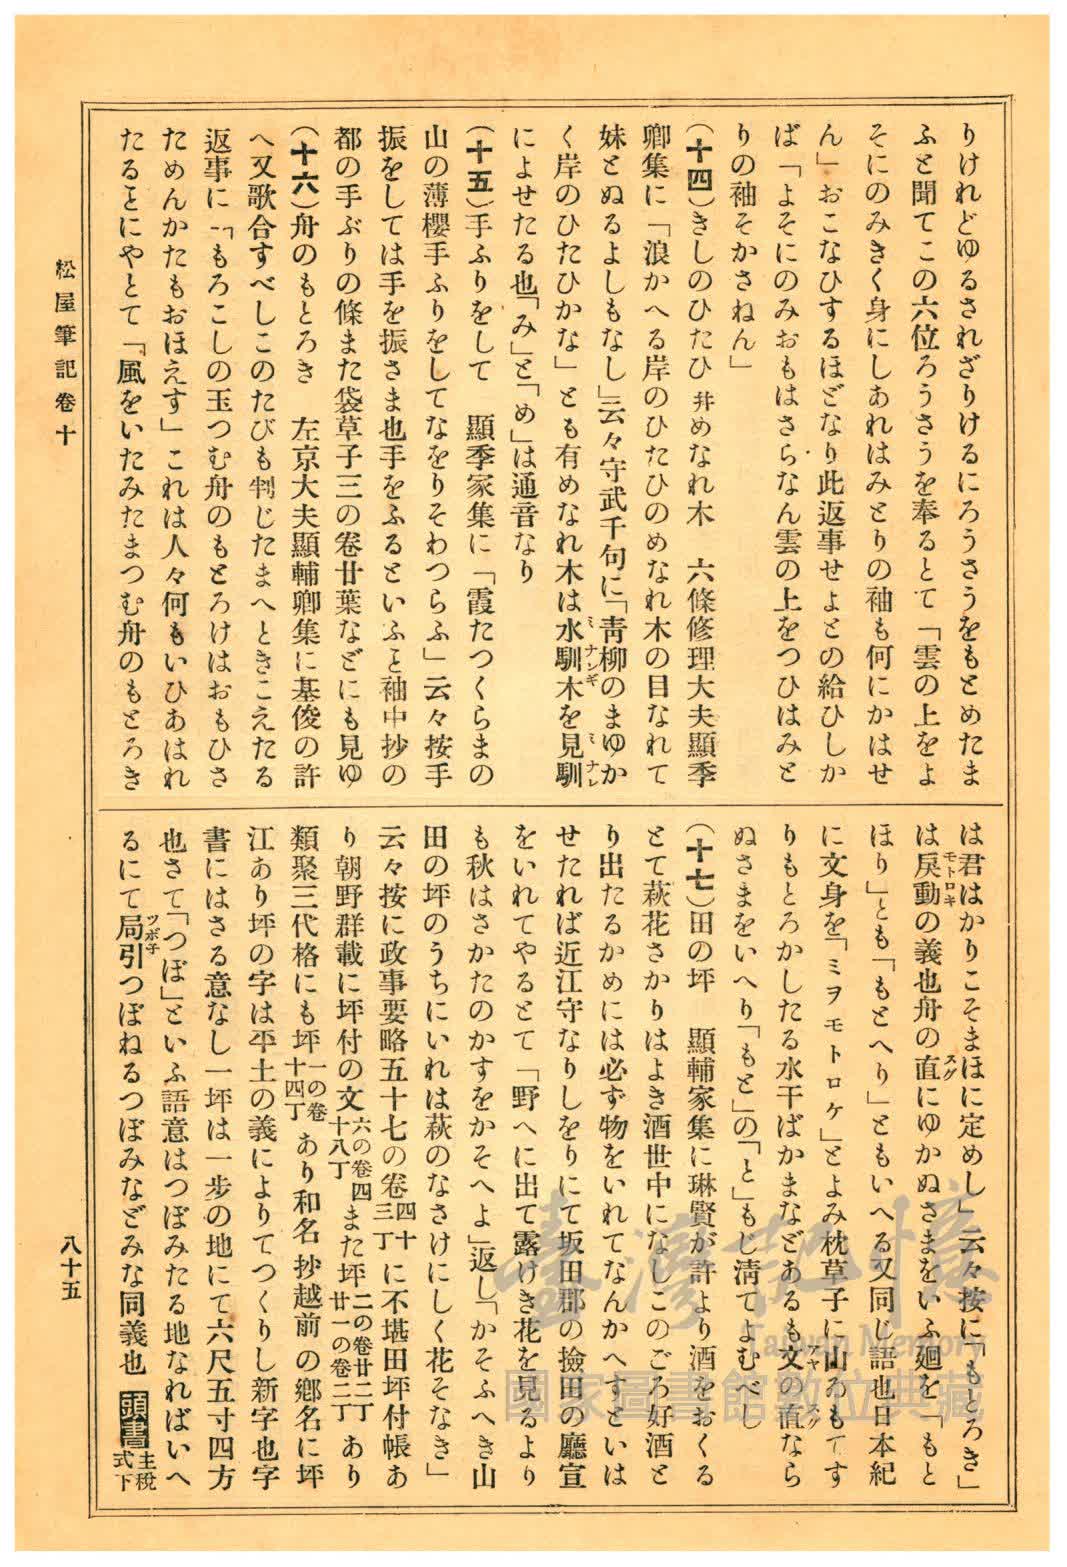 りけれどゆるされざりけるにろうさうをもとめたま
ふと聞てこの六位ろうさうを奉るとて「雲の上をよ
そにのみきく身にしあれはみとりの袖も何にかはせ
ん」おこなひするほどなり此返事せよとの給ひしか
ば「よそにのみおもはさらなん雲の上をつひはみと
りの袖そかさねん」
(十四)きしのひたひ幷めなれ木　六條修理大夫顯季
卿集に「浪かへる岸のひたひのめなれ木の目なれて
妹とぬるよしもなし」云々守武千句に「靑柳のまゆか
く岸のひたひかな」とも有めなれ木は水馴木を見馴
ミナンギ
ミナレ
によせたる也「み」と「め」は通音なり
(十五)手ふりをして　顯季家集に「霞たつくらまの
山の薄櫻手ふりをしてなをりそわつらふ」云々按手
振をしては手を振さま也手をふるといふと袖中抄の
都の手ぶりの條また袋草子三の卷廿葉などにも見ゆ
(十六)舟のもとろき　左京大夫顯輔卿集に基俊の許
へ又歌合すべしこのたびも判じたまへときこえたる
返事に「もろこしの玉つむ舟のもとろけはおもひさ
ためんかたもおほえす」これは人々何もいひあはれ
たるとにやとて「風をいたみたまつむ舟のもとろき
は君はかりこそまほに定めし」云々按に「もとろき」
は戾動の義也舟の直にゆかぬさまをいふ廻を「もと
モトロキ
スグ
ほり」とも「もとへり」ともいへる又同じ語也日本紀
に文身を「ミヲモトロケ」とよみ枕草子に山ゐもてす
りもとろかしたる水干ばかまなどあるも文の直なら
アヤ
スグ
ぬさまをいへり「もと」の「と」もじ淸てよむべし
(十七)田の坪　顯輔家集に琳賢が許より酒をおくる
とて萩花さかりはよき酒世中になしこのごろ好酒と
り出たるかめには必ず物をいれてなんかへすといは
せたれば近江守なりしをりにて坂田郡の撿田の廳宣
をいれてやるとて「野へに出て露けき花を見るより
も秋はさかたのかすをかそへよ」返し「かそふへき山
田の坪のうちにいれは萩のなさけにしく花そなき」
云々按に政事要略五十七の卷四十三丁に不堪田坪付帳あ
り朝野群載に坪付の文六の卷四十八丁また坪二の卷廿二丁廿一の卷二丁あり
類聚三代格にも坪一の卷十四丁あり和名抄越前の鄕名に坪
江あり坪の字は平土の義によりてつくりし新字也字
書にはさる意なし一坪は一步の地にて六尺五寸四方
也さて「つぼ」といふ語意はつぼみたる地なればいへ
るにて局引つぼねるつぼみなどみな同義也　頭書主税式下
ツボネ
松屋筆記卷十
八十五
臺灣記憶
Taiwan Memory
國家圖書館數位典藏